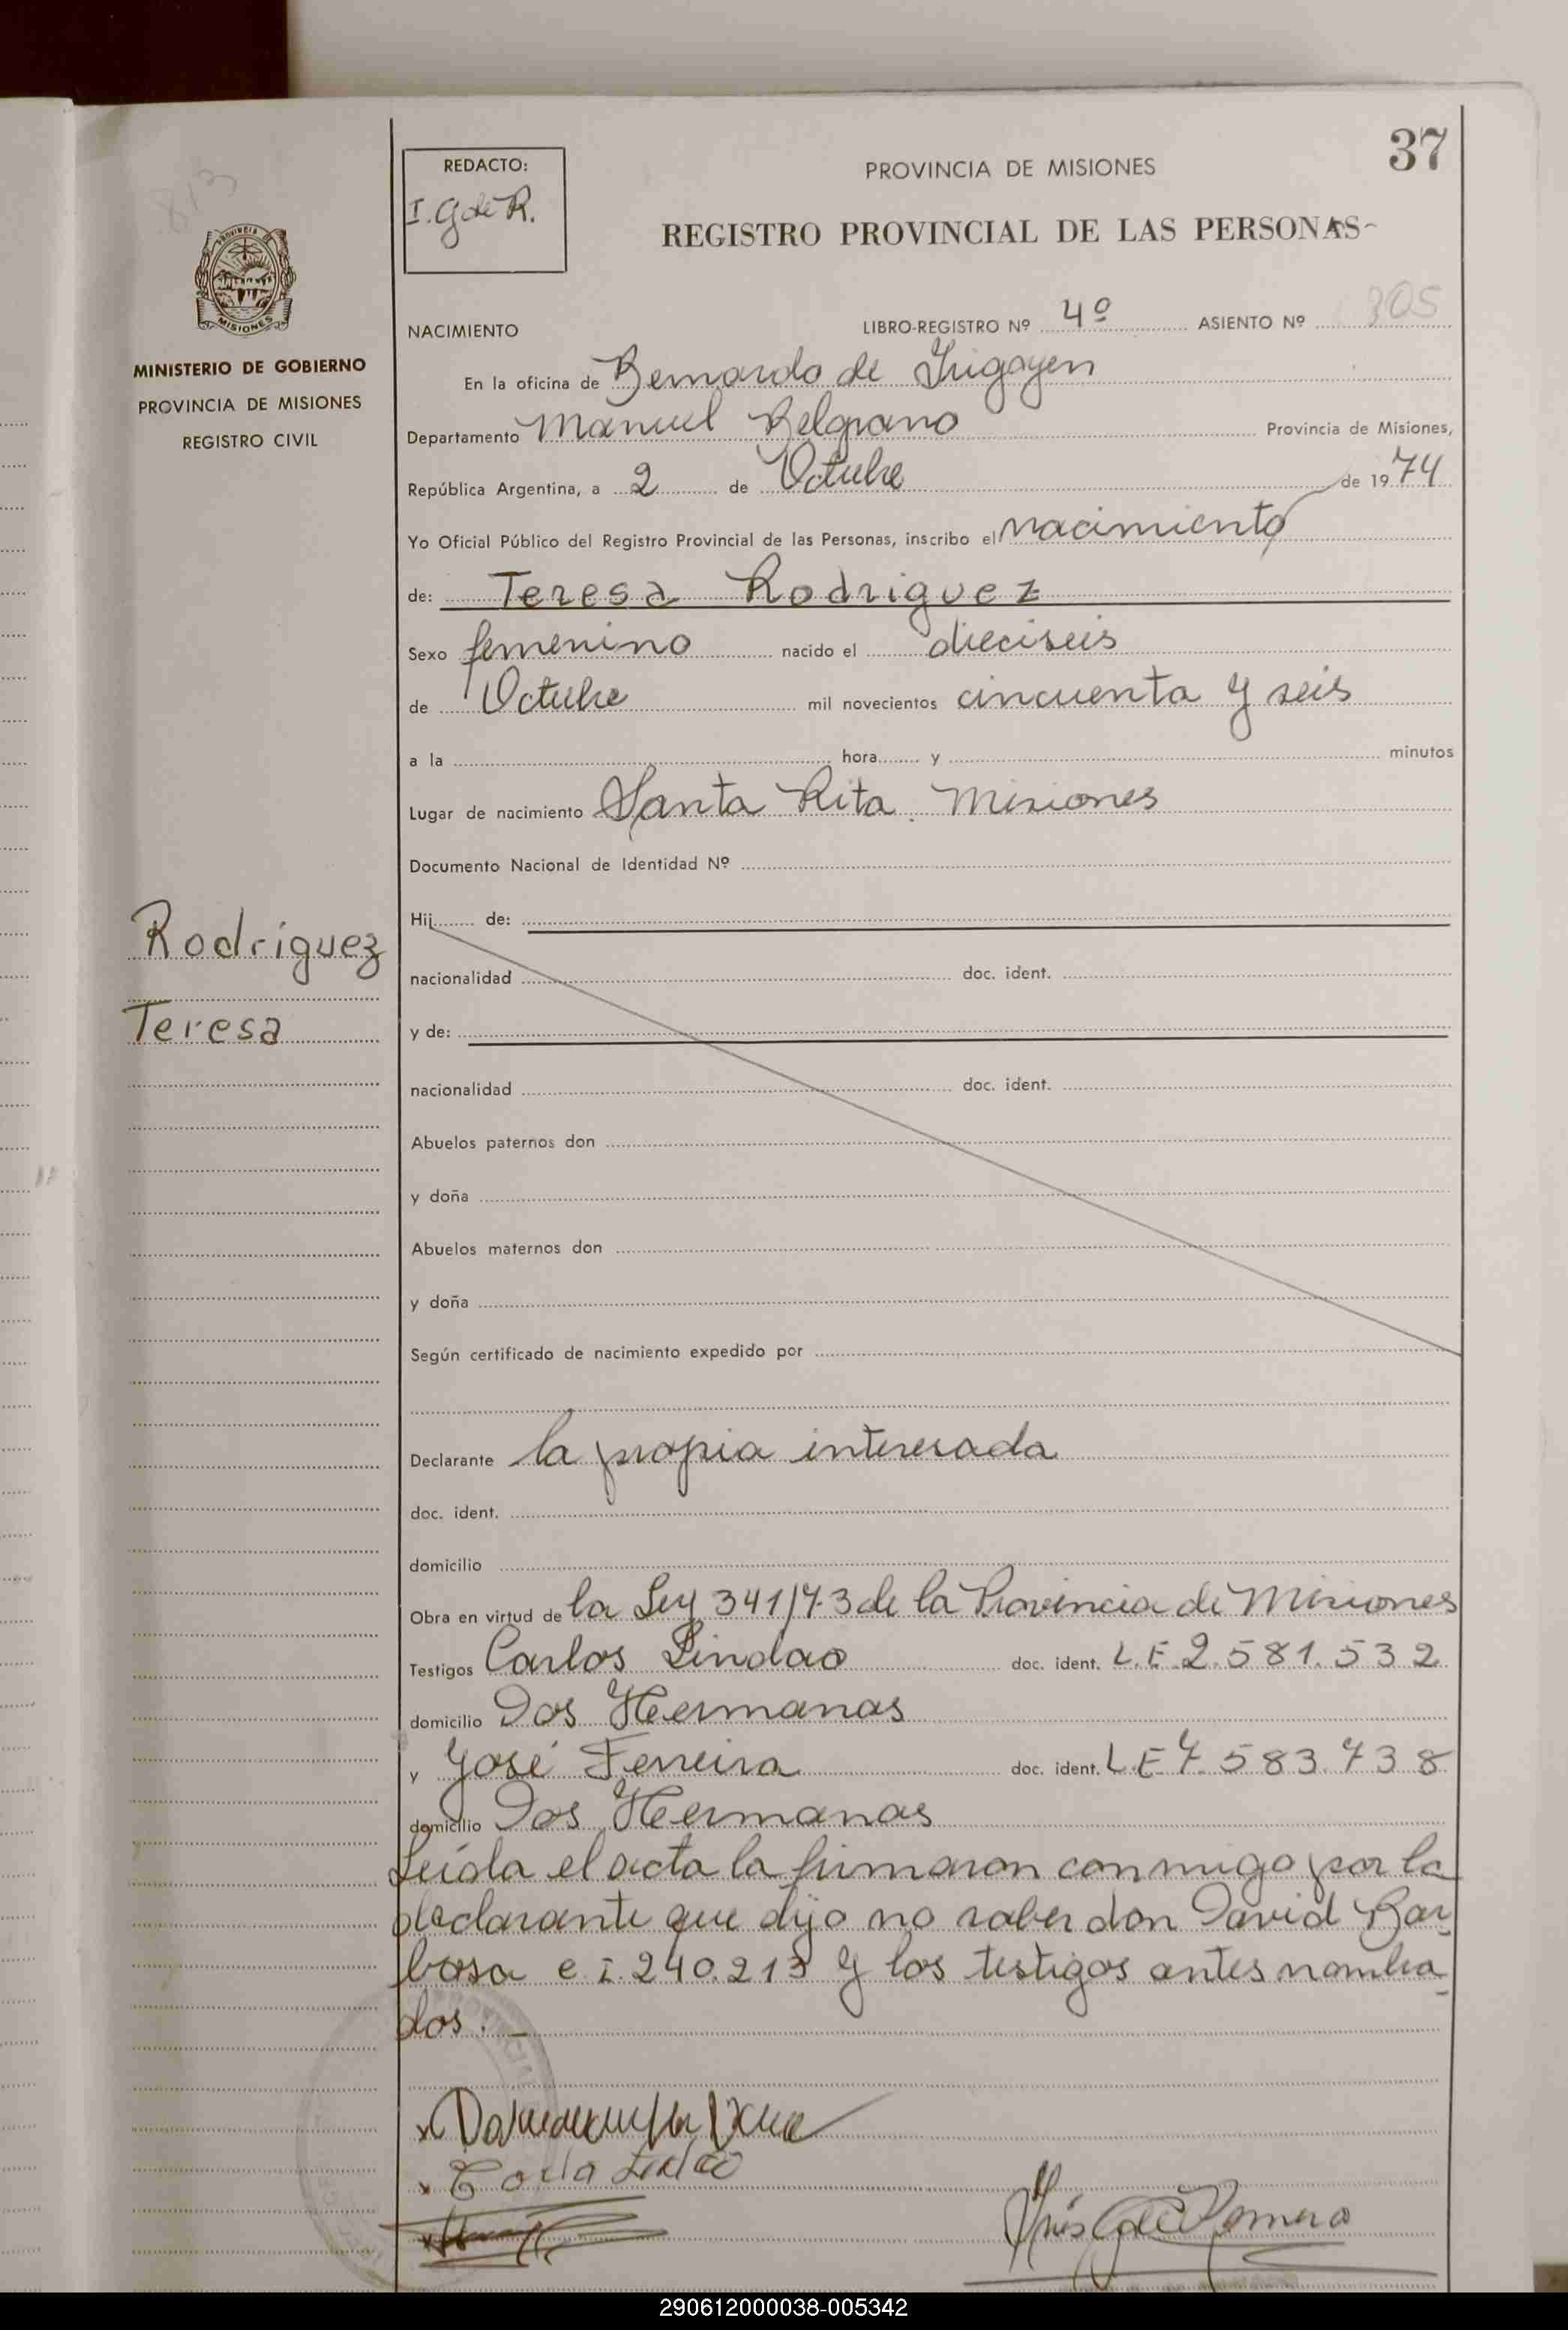 813
REDACTO:
I. G de R.
37
PROVINCIA DE MISIONES
REGISTRO PROVINCIAL DE LAS PERSONAS
MISIONES
MINISTERIO DE GOBIERNO
PROVINCIA DE MISIONES
REGISTRO CIVIL
NACIMIENTO
LIBRO-REGISTRO Nº 4º ASIENTO Nº 305
En la oficina de Bernardo de Irigoyen
Departamento Manuel Belgrano Provincia de Misiones,
República Argentina, a 2 de Octubre de 1974
Yo Oficial Público del Registro Provincial de las Personas, inscribo el nacimiento
de: Teresa Rodriguez
Sexo femenino nacido el dieciseis
de Octubre mil novecientos cincuenta y seis
a la hora y minutos
Lugar de nacimiento Santa Rita. Misiones
Documento Nacional de Identidad Nº
Rodriguez
Teresa
Hij de:
nacionalidad doc. ident.
y de:
nacionalidad doc. ident.
Abuelos paternos don
y doña
Abuelos maternos don
y doña
Según certificado de nacimiento expedido por
Declarante la propia interesada
doc. ident.
domicilio
Obra en virtud de la Ley 341/73 de la Provincia de Misiones
Testigos Carlos Lindao doc. ident. L.E. 2.581.532
domicilio Dos Hermanas
y José Ferreira doc. ident. L.E 7.583.738
domicilio Dos Hermanas
Leída el acta la firmaron conmigo por la
declarante que dijo no saber don David Bar-
bosa c.i. 240.213 y los testigos antes nombra-
dos. –
Inés G de Romero
290612000038-005342